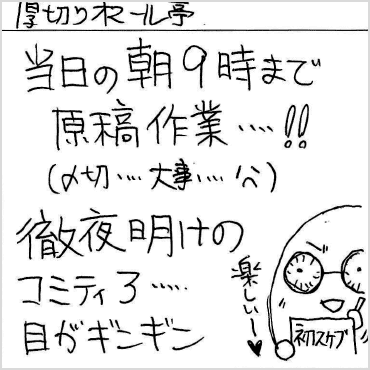 厚切りホエール亭
当日の朝9時まで
原稿作業‥‥!!
(〆切‥‥大事‥‥'^)
徹夜明けの
コミティア‥‥‥
目がギンギン
楽しいー♥
初スケブ